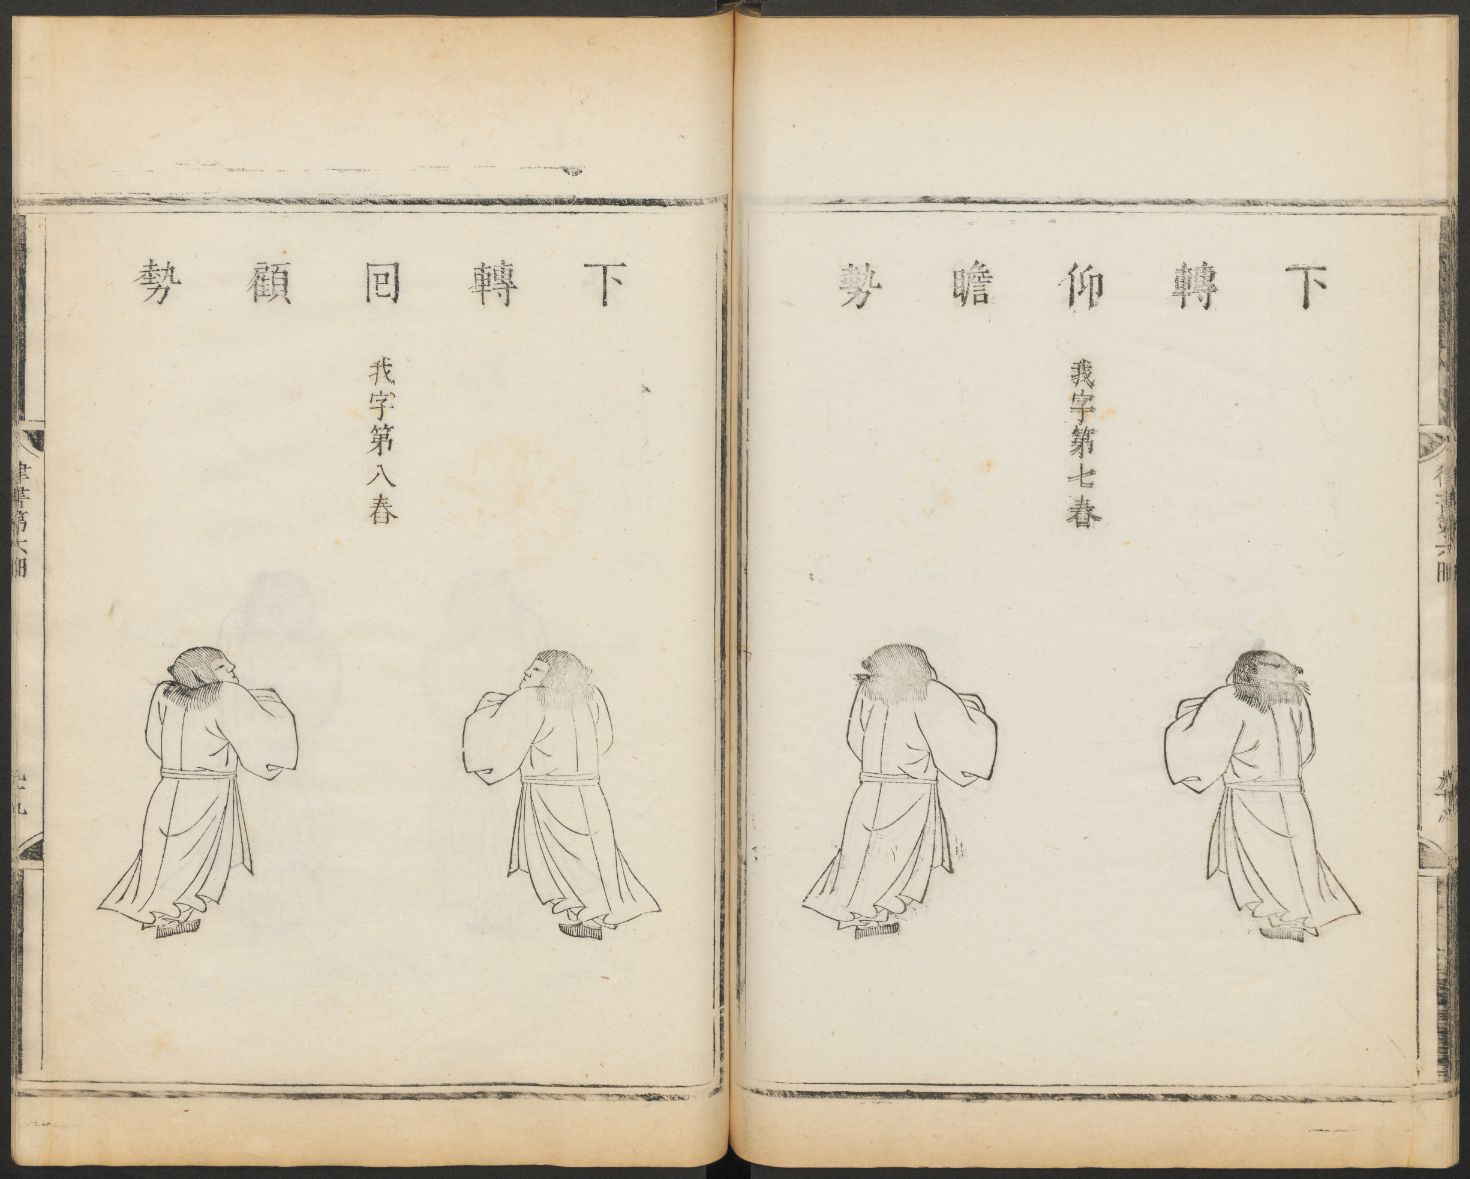 下轉仰瞻勢
我字第七舂
下轉囘顧勢
我字第八舂
律書第六冊